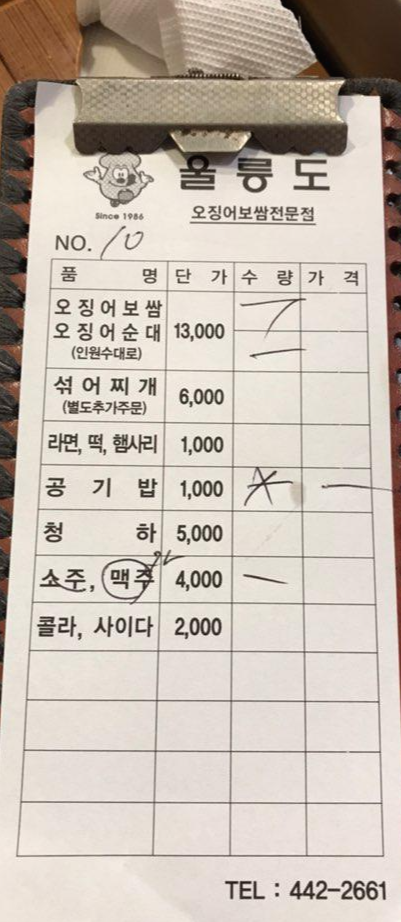 울릉도
Since 1986
오징어보쌈전문점
NO. 10
품 명 단 가 수 량 가 격
오징어보쌈
오징어순대 13,000
(인원수대로)
섞어찌개 6,000
(별도추가주문)
라면, 떡, 햄사리 1,000
공 기 밥 1,000
청 하 5,000
소주, 맥주 4,000
콜라, 사이다 2,000
TEL : 442-2661